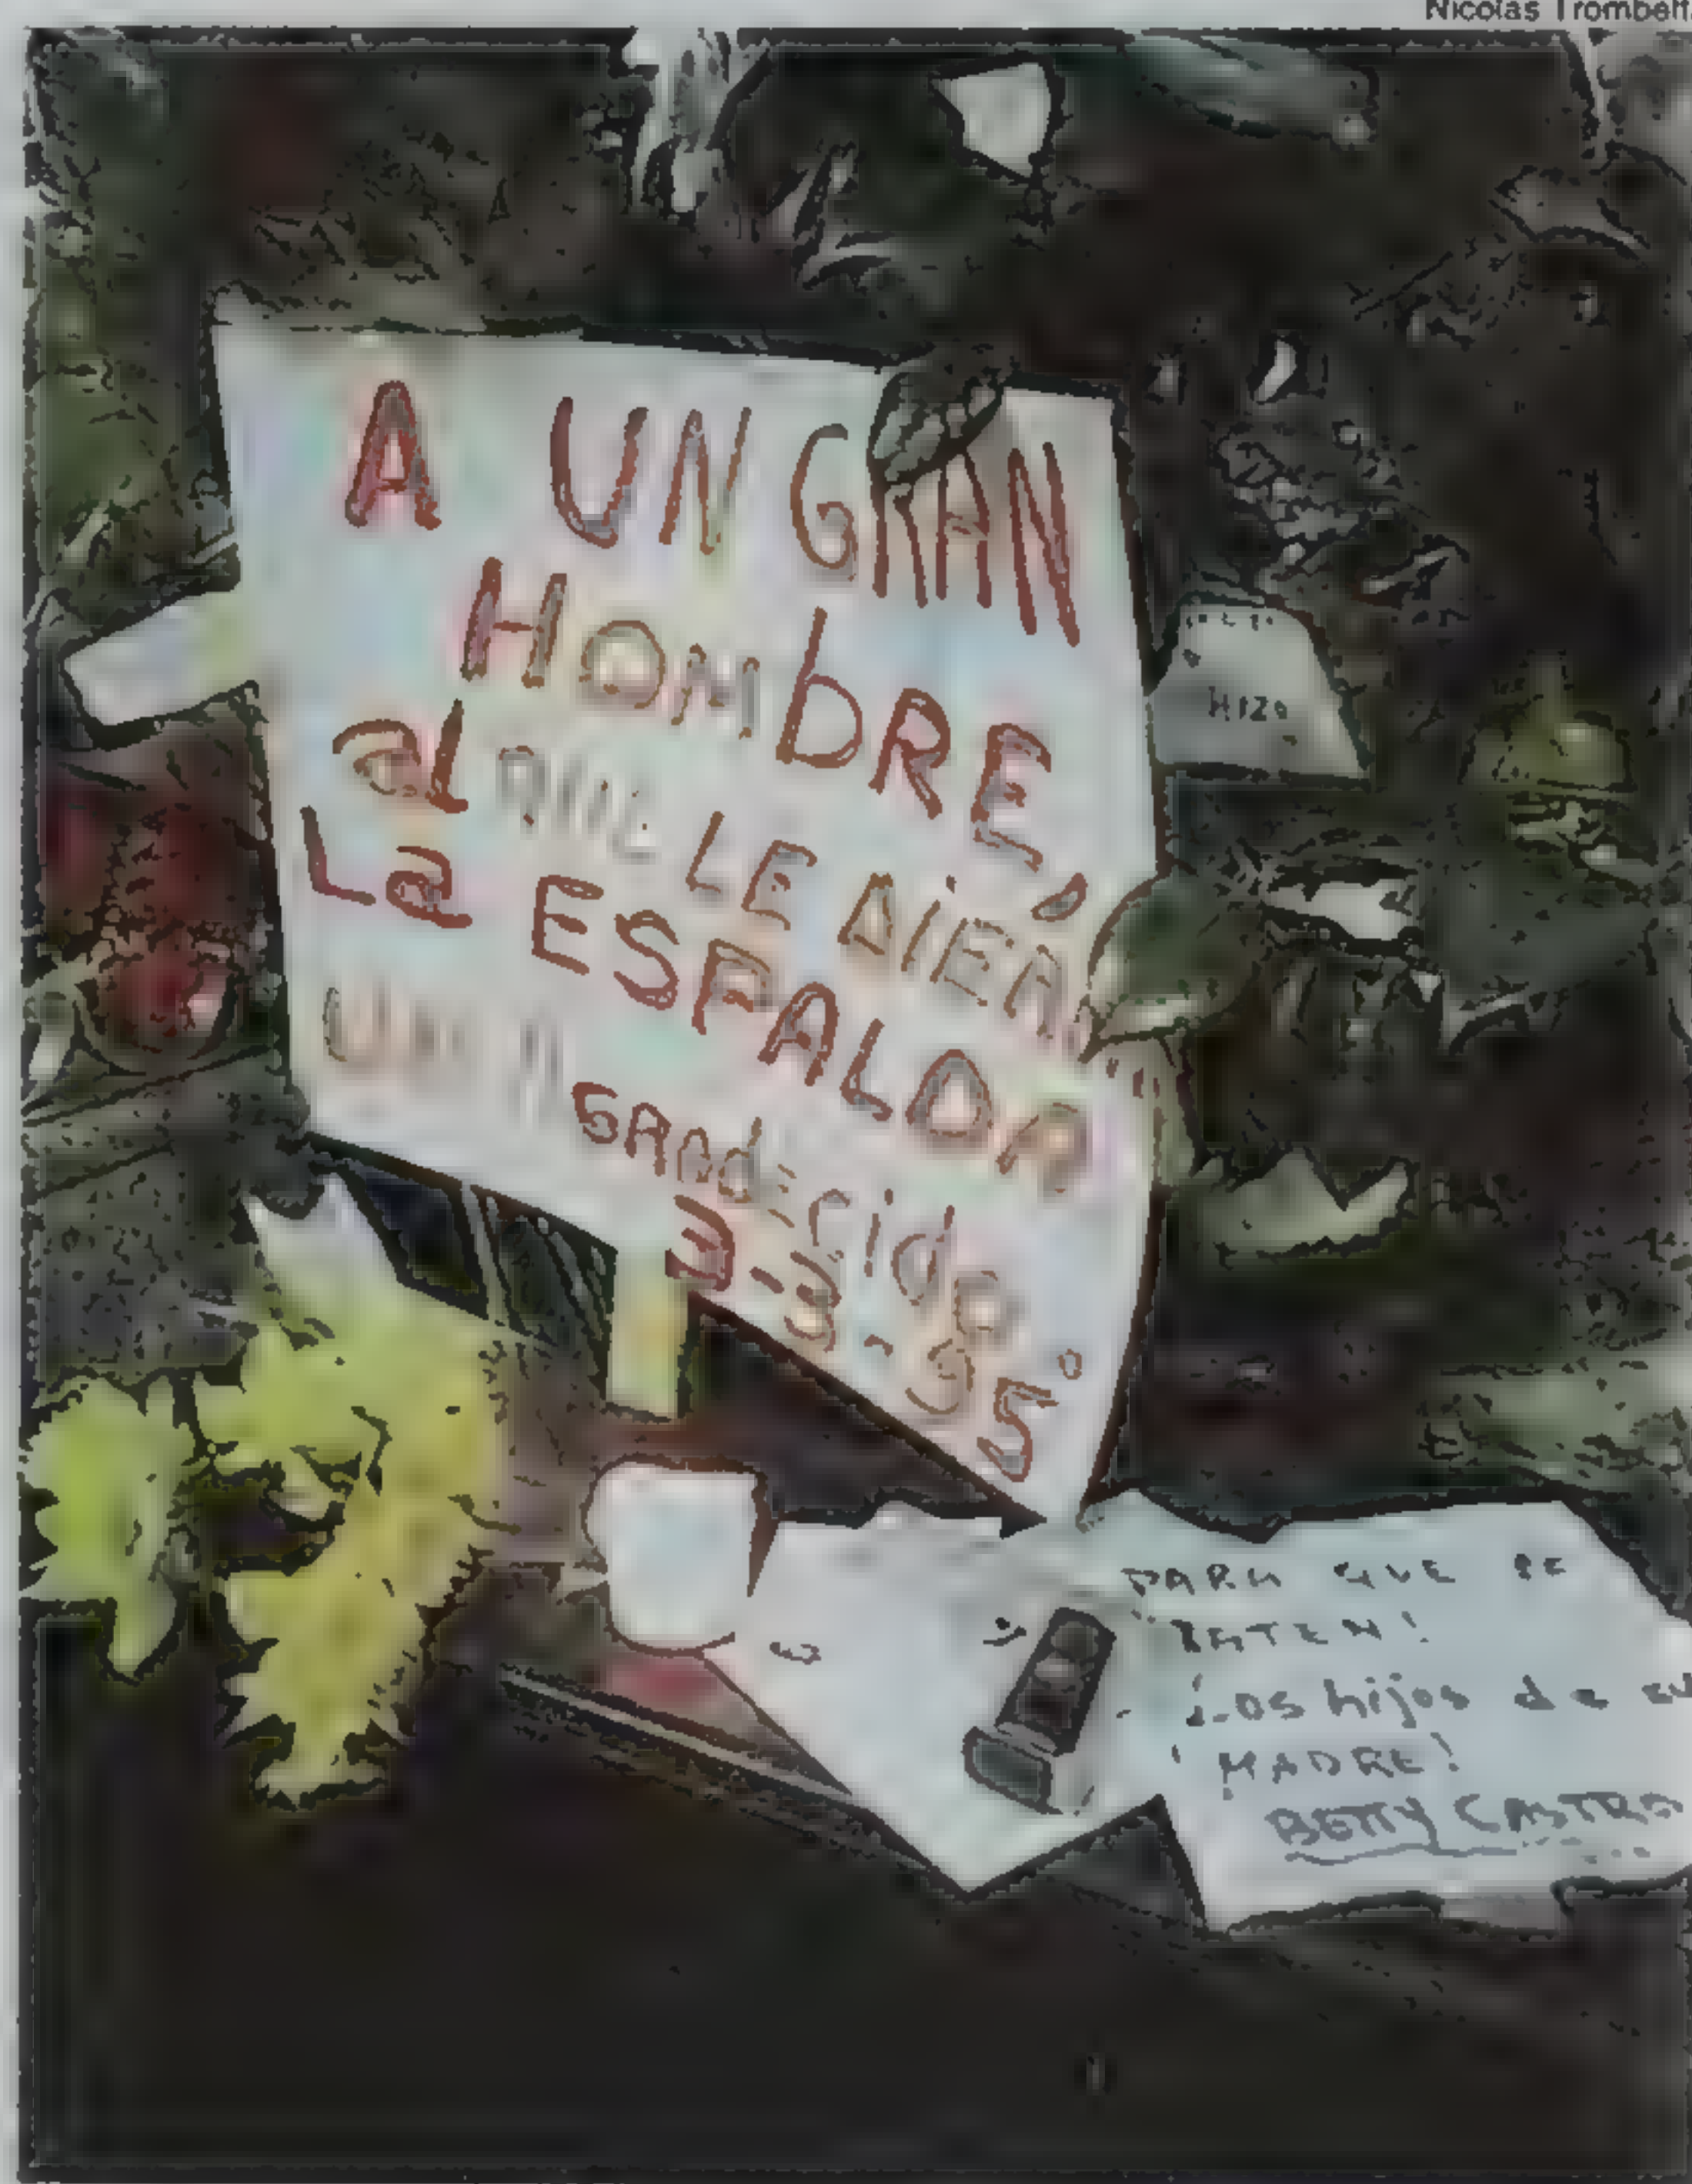 Nicolas Trombett
A UN GRAN
HOMBRE,
aL QUE LE DIERON
La ESPALDA
UN A
GRADECIDO
3-3-95
HIZO
PARA QUE SE
Los hijos de su
MADRE!
BETTY CASTRO